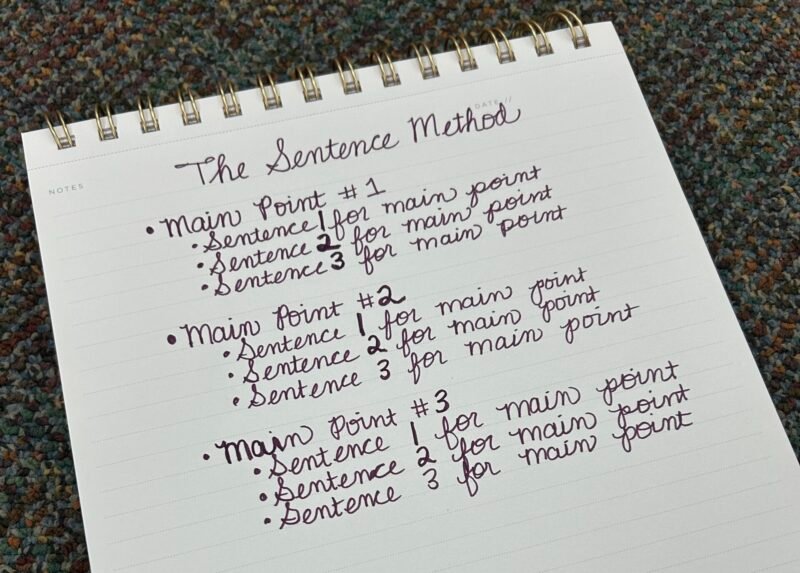 DATE //
NOTES
The Sentence Method
• Main Point #1
• Sentence 1 for main point
• Sentence 2 for main point
• Sentence 3 for main point
• Main Point #2
• Sentence 1 for main point
• Sentence 2 for main point
• Sentence 3 for main point
• Main Point #3
• Sentence 1 for main point
• Sentence 2 for main point
• Sentence 3 for main point